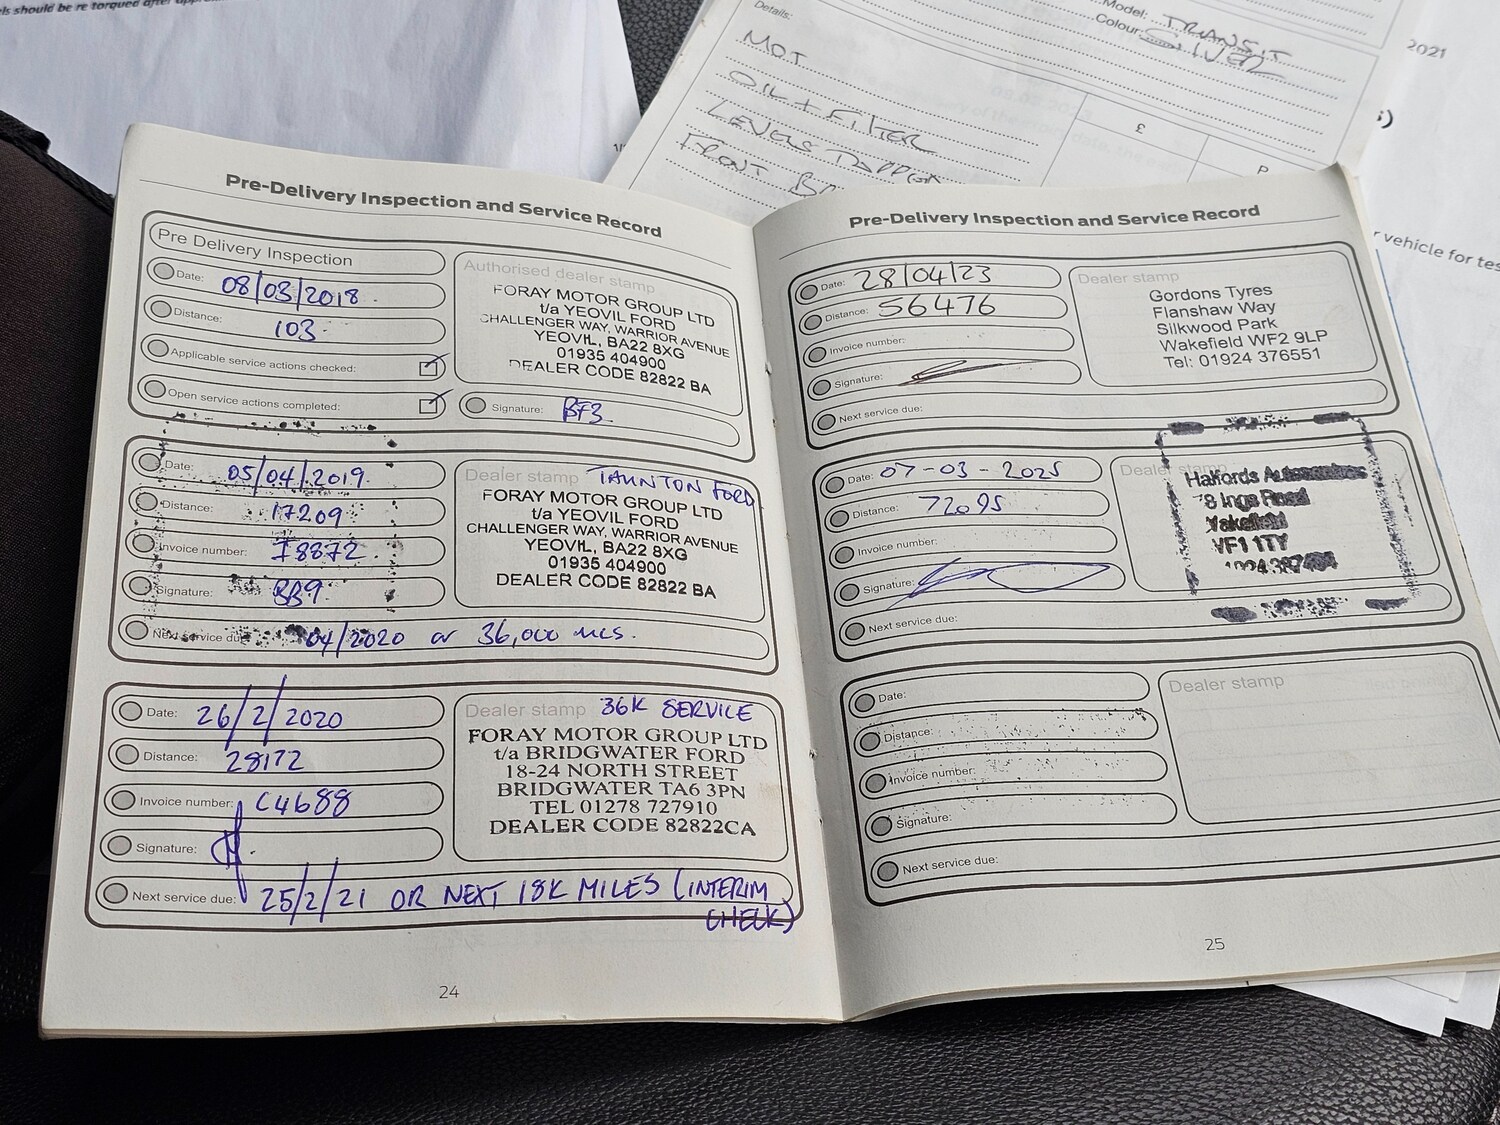 ls should be re torqued after
Model: TRANSIT
Colour SILVER
2021
Details:
MOT
OIL + FILTER
LEVELS TOPPED
FRONT
£
P
r vehicle for tes
Pre-Delivery Inspection and Service Record
Pre Delivery Inspection
Date: 08/03/2018
Distance: 103
Applicable service actions checked:
Open service actions completed:
Authorised dealer stamp
FORAY MOTOR GROUP LTD
t/a YEOVIL FORD
CHALLENGER WAY, WARRIOR AVENUE
YEOVIL, BA22 8XG
01935 404900
DEALER CODE 82822 BA
Signature: BF3
Date: 05/04/2019
Distance: 17209
Invoice number: I8872
Signature: BB9
Next service due: 04/2020 or 36,000 mls.
Dealer stamp TAUNTON FORD
FORAY MOTOR GROUP LTD
t/a YEOVIL FORD
CHALLENGER WAY, WARRIOR AVENUE
YEOVIL, BA22 8XG
01935 404900
DEALER CODE 82822 BA
Date: 26/2/2020
Distance: 28172
Invoice number: C4688
Signature:
Next service due: 25/2/21 OR NEXT 18K MILES (INTERIM
CHECK)
Dealer stamp 36K SERVICE
FORAY MOTOR GROUP LTD
t/a BRIDGWATER FORD
18-24 NORTH STREET
BRIDGWATER TA6 3PN
TEL 01278 727910
DEALER CODE 82822CA
24
Pre-Delivery Inspection and Service Record
Date: 28/04/23
Distance: 56476
Invoice number:
Signature:
Next service due:
Dealer stamp
Gordons Tyres
Flanshaw Way
Silkwood Park
Wakefield WF2 9LP
Tel: 01924 376551
Date: 07-03-2025
Distance: 72095
Invoice number:
Signature:
Next service due:
Dealer stamp
Halfords Autocentres
78 Ings Road
Wakefield
WF1 1TY
Date:
Distance:
Invoice number:
Signature:
Next service due:
Dealer stamp
25